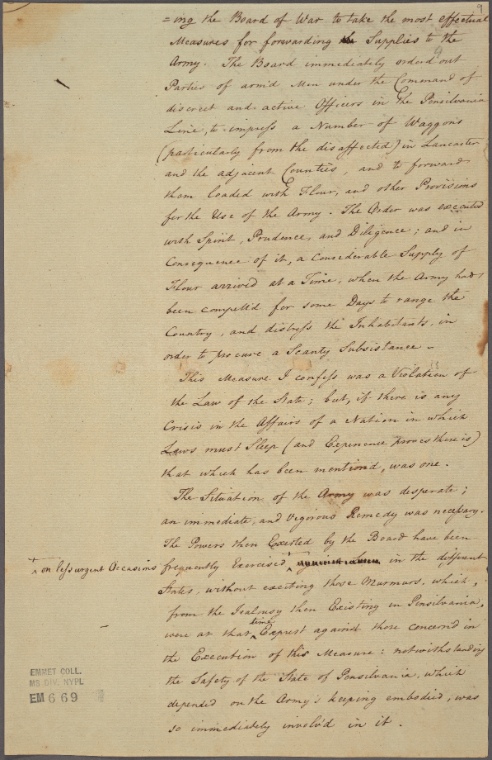 9
=ing the Board of War to take the most effectual
Measures for forwarding the Supplies to the
Army. The Board immediately orderd out
Parties of armid Men under the Command of
discreet and active Officers in the Pensilvania
Line, to impress a Number of Waggons
(particularly from the disaffected) in Lancaster
and the adjacent Counties, and to forward
them loaded with Flour, and other Provisions
for the Use of the Army. The Order was executed
with Spirit, Prudence, and Diligence; and in
Consequence of it, a Considerable Supply of
Flour arrived at a Time, when the Army had
been compell'd for some Days to range the
Country, and distress the Inhabitants, in
order to procure a Scanty Subsistance.
This Measure I confess was a Violation of
the Law of the State; but, if there is any
Crisis in the Affairs of a Nation in which
Laws must Sleep (and Experience proves there is)
that which has been mentiond, was one.
The Situation of the Army was desperate;
an immediate, and vigorous Remedy was necessary.
The Powers then Exerted by the Board have been
frequently Exercised ^ in the different
^ on less urgent Occasions
States, without exciting those Murmurs, which,
from the Jealousy then Existing in Pensilvania,
were at that time Exprest against those concernd in
the Execution of this Measure: notwithstanding
the Safety of the State of Pensilvania, which
depended on the Army's keeping embodied, was
so immediately involv'd in it.
EMMET COLL.
MS DIV. NYPL
EM 669